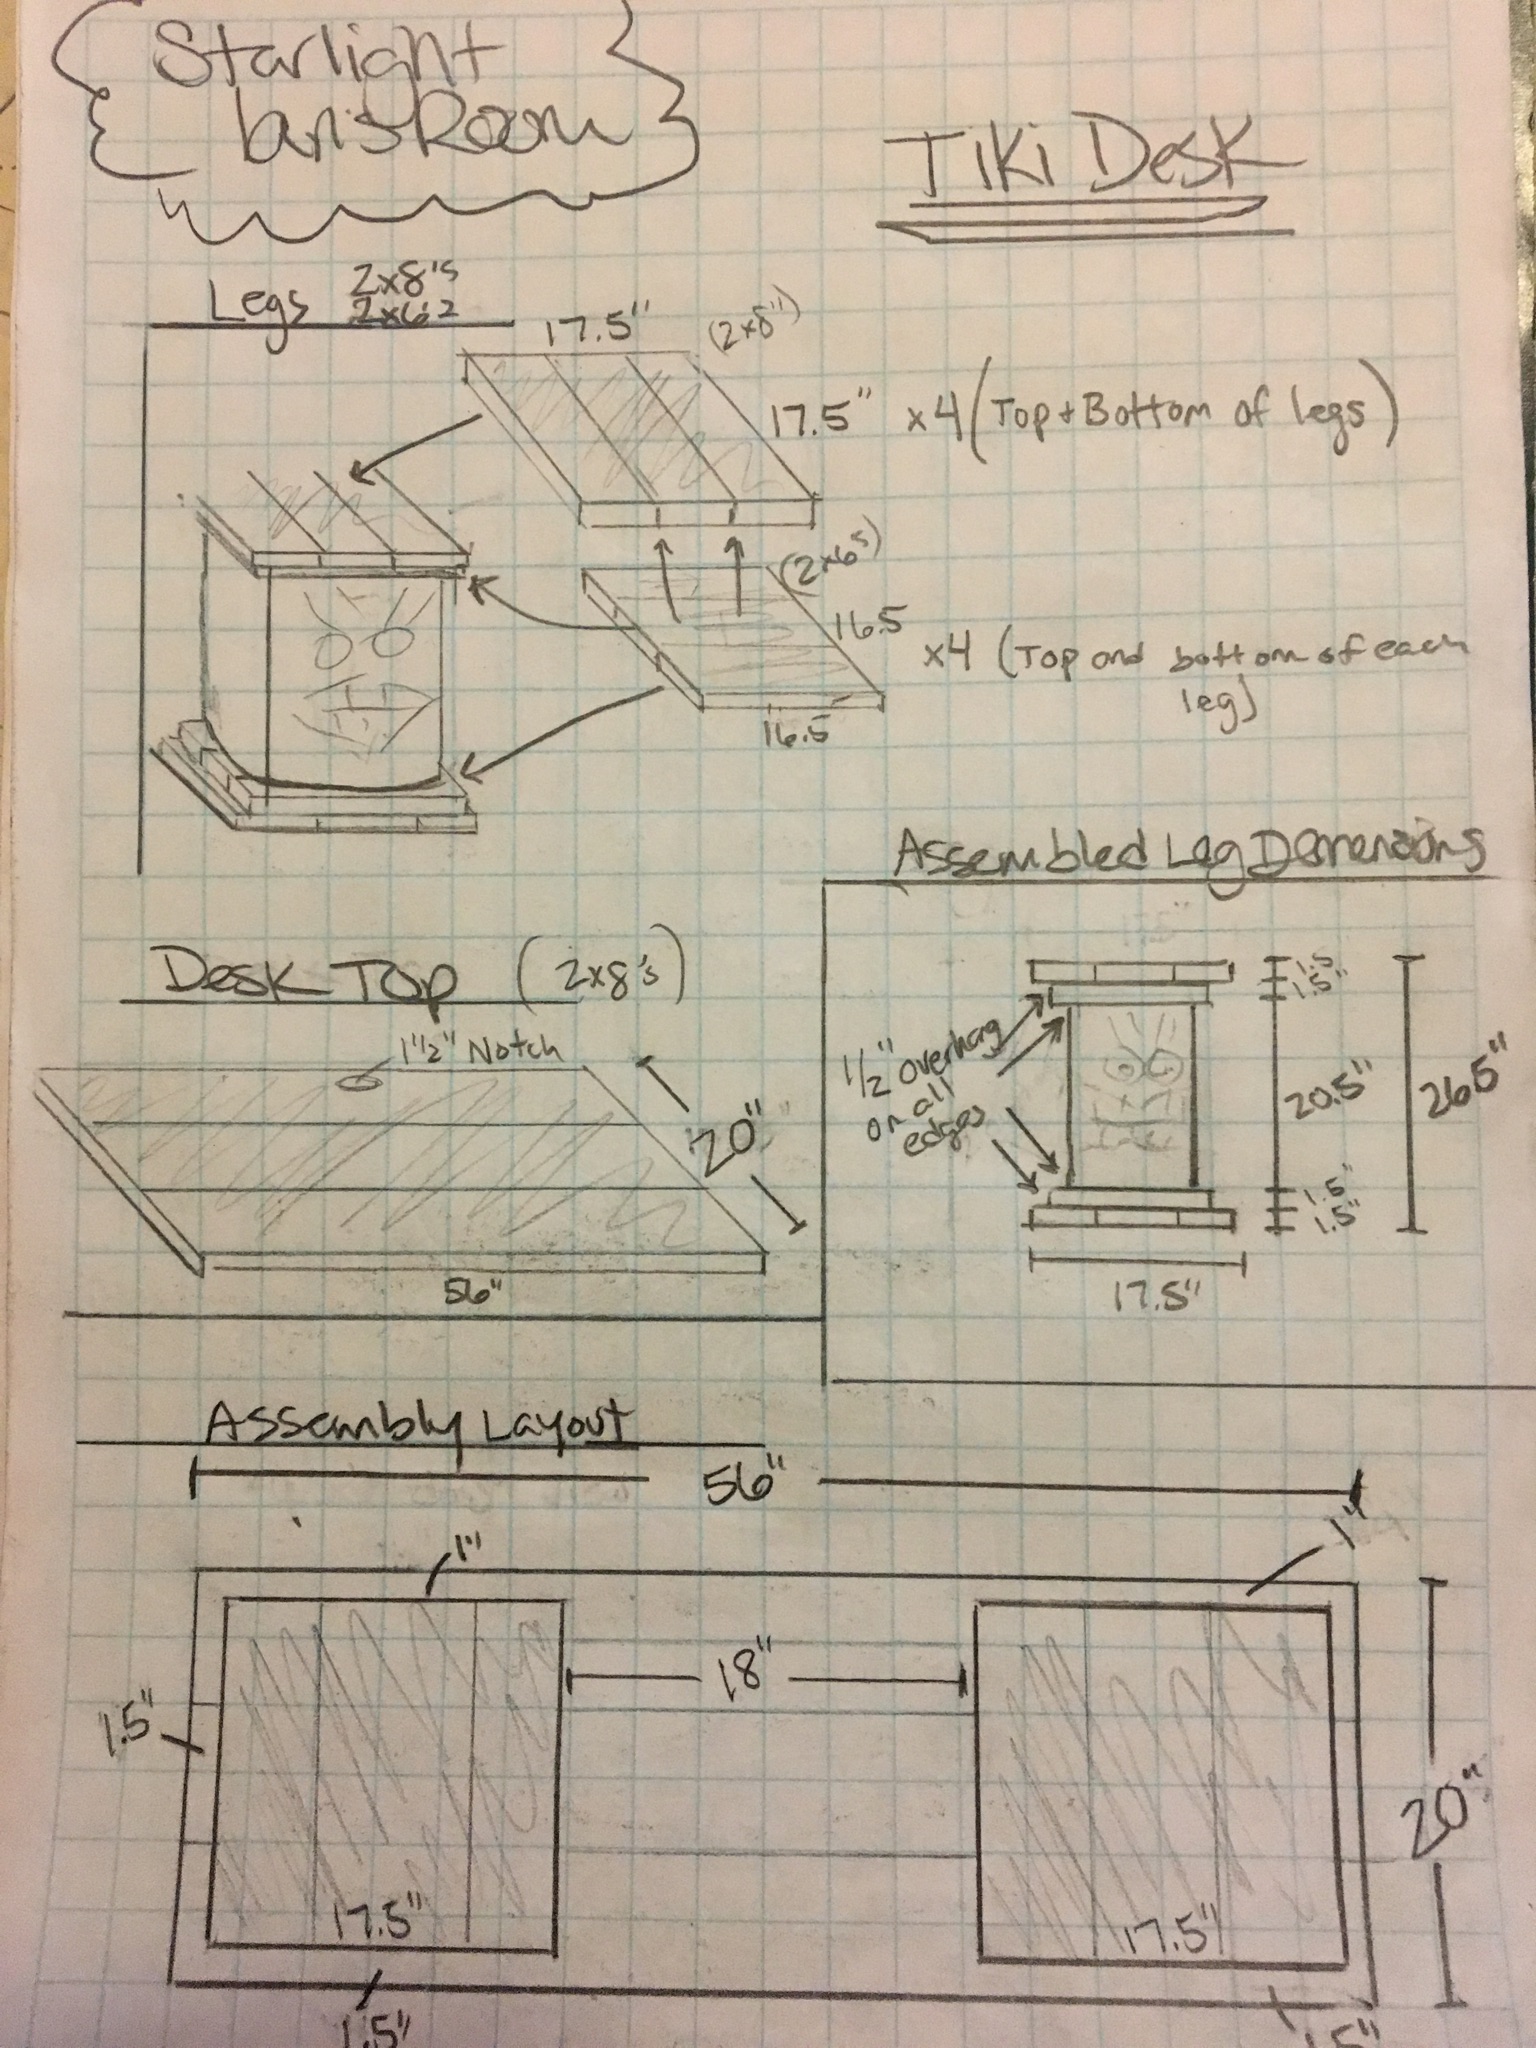 Starlight
Room
Tiki Desk
Legs 2x8's
17.5"
(2x8")
17.5" x4 (Top + Bottom of legs)
(2x6s)
16.5
x4 (Top and bottom of each
leg)
16.5
Assembled Leg Demensions
Desk Top (2x8's)
1 1/2" Notch
20"
56"
1.5"
1.5"
1/2" overhang
on all
edges
20.5"
26.5"
1.5"
1.5"
17.5"
Assembly Layout
56"
1"
1"
18"
1.5"
20"
17.5"
17.5"
1.5"